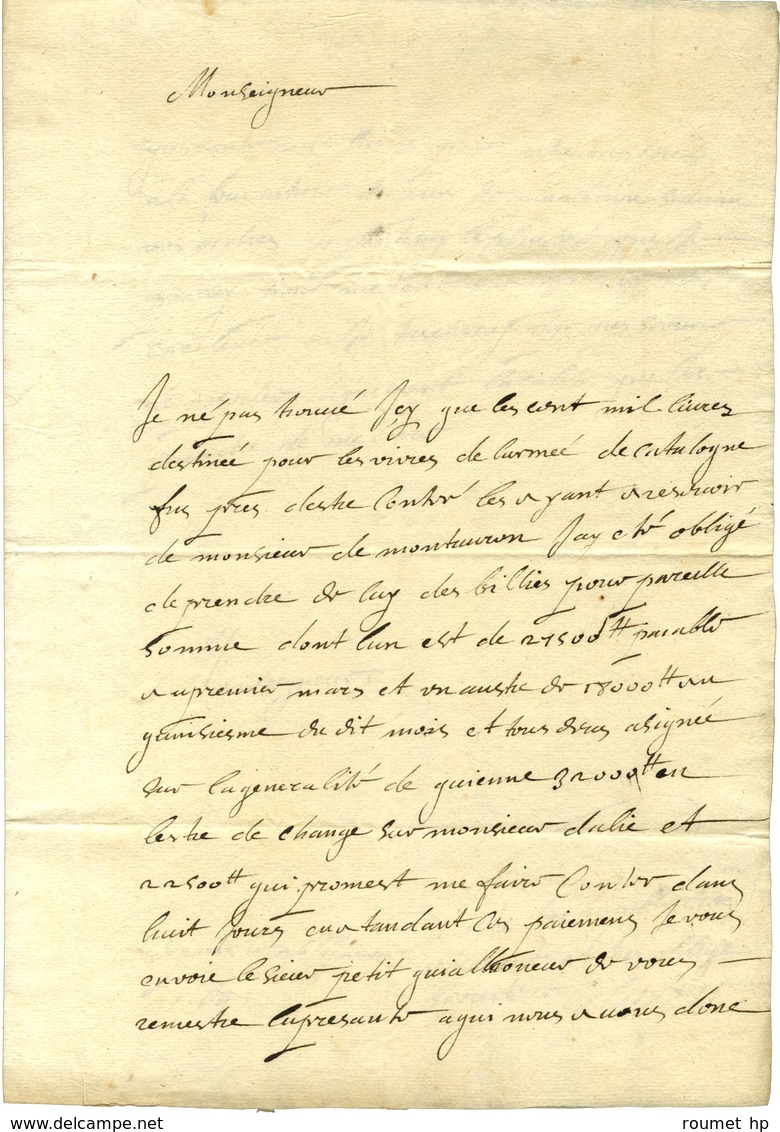 Monseigneur
Je né pas trouué Jcy que les cent mil liures
destinée pour les viures de larmeé de catalogne
fus près destre Contré les ayant a reseuoir
de monsieur de montauron Jay eté obligé
de prendre de luy des billies pour pareille
somme dont lun est de 27500tt paiable
au premier mars et un austre de 18000tt au
quinsiesme du dit mois et tous deus asignée
sur la generalité de guienne 32000tt en
lestre de change sur monsieur dalie et
22500tt qui promest me faire Conter dans
huit Jours en atandant Ces paiemens Je vous
envoie le sieur petit qui a lhoneur de vous
remestre la presante a qui nous auons donc
roumet hp